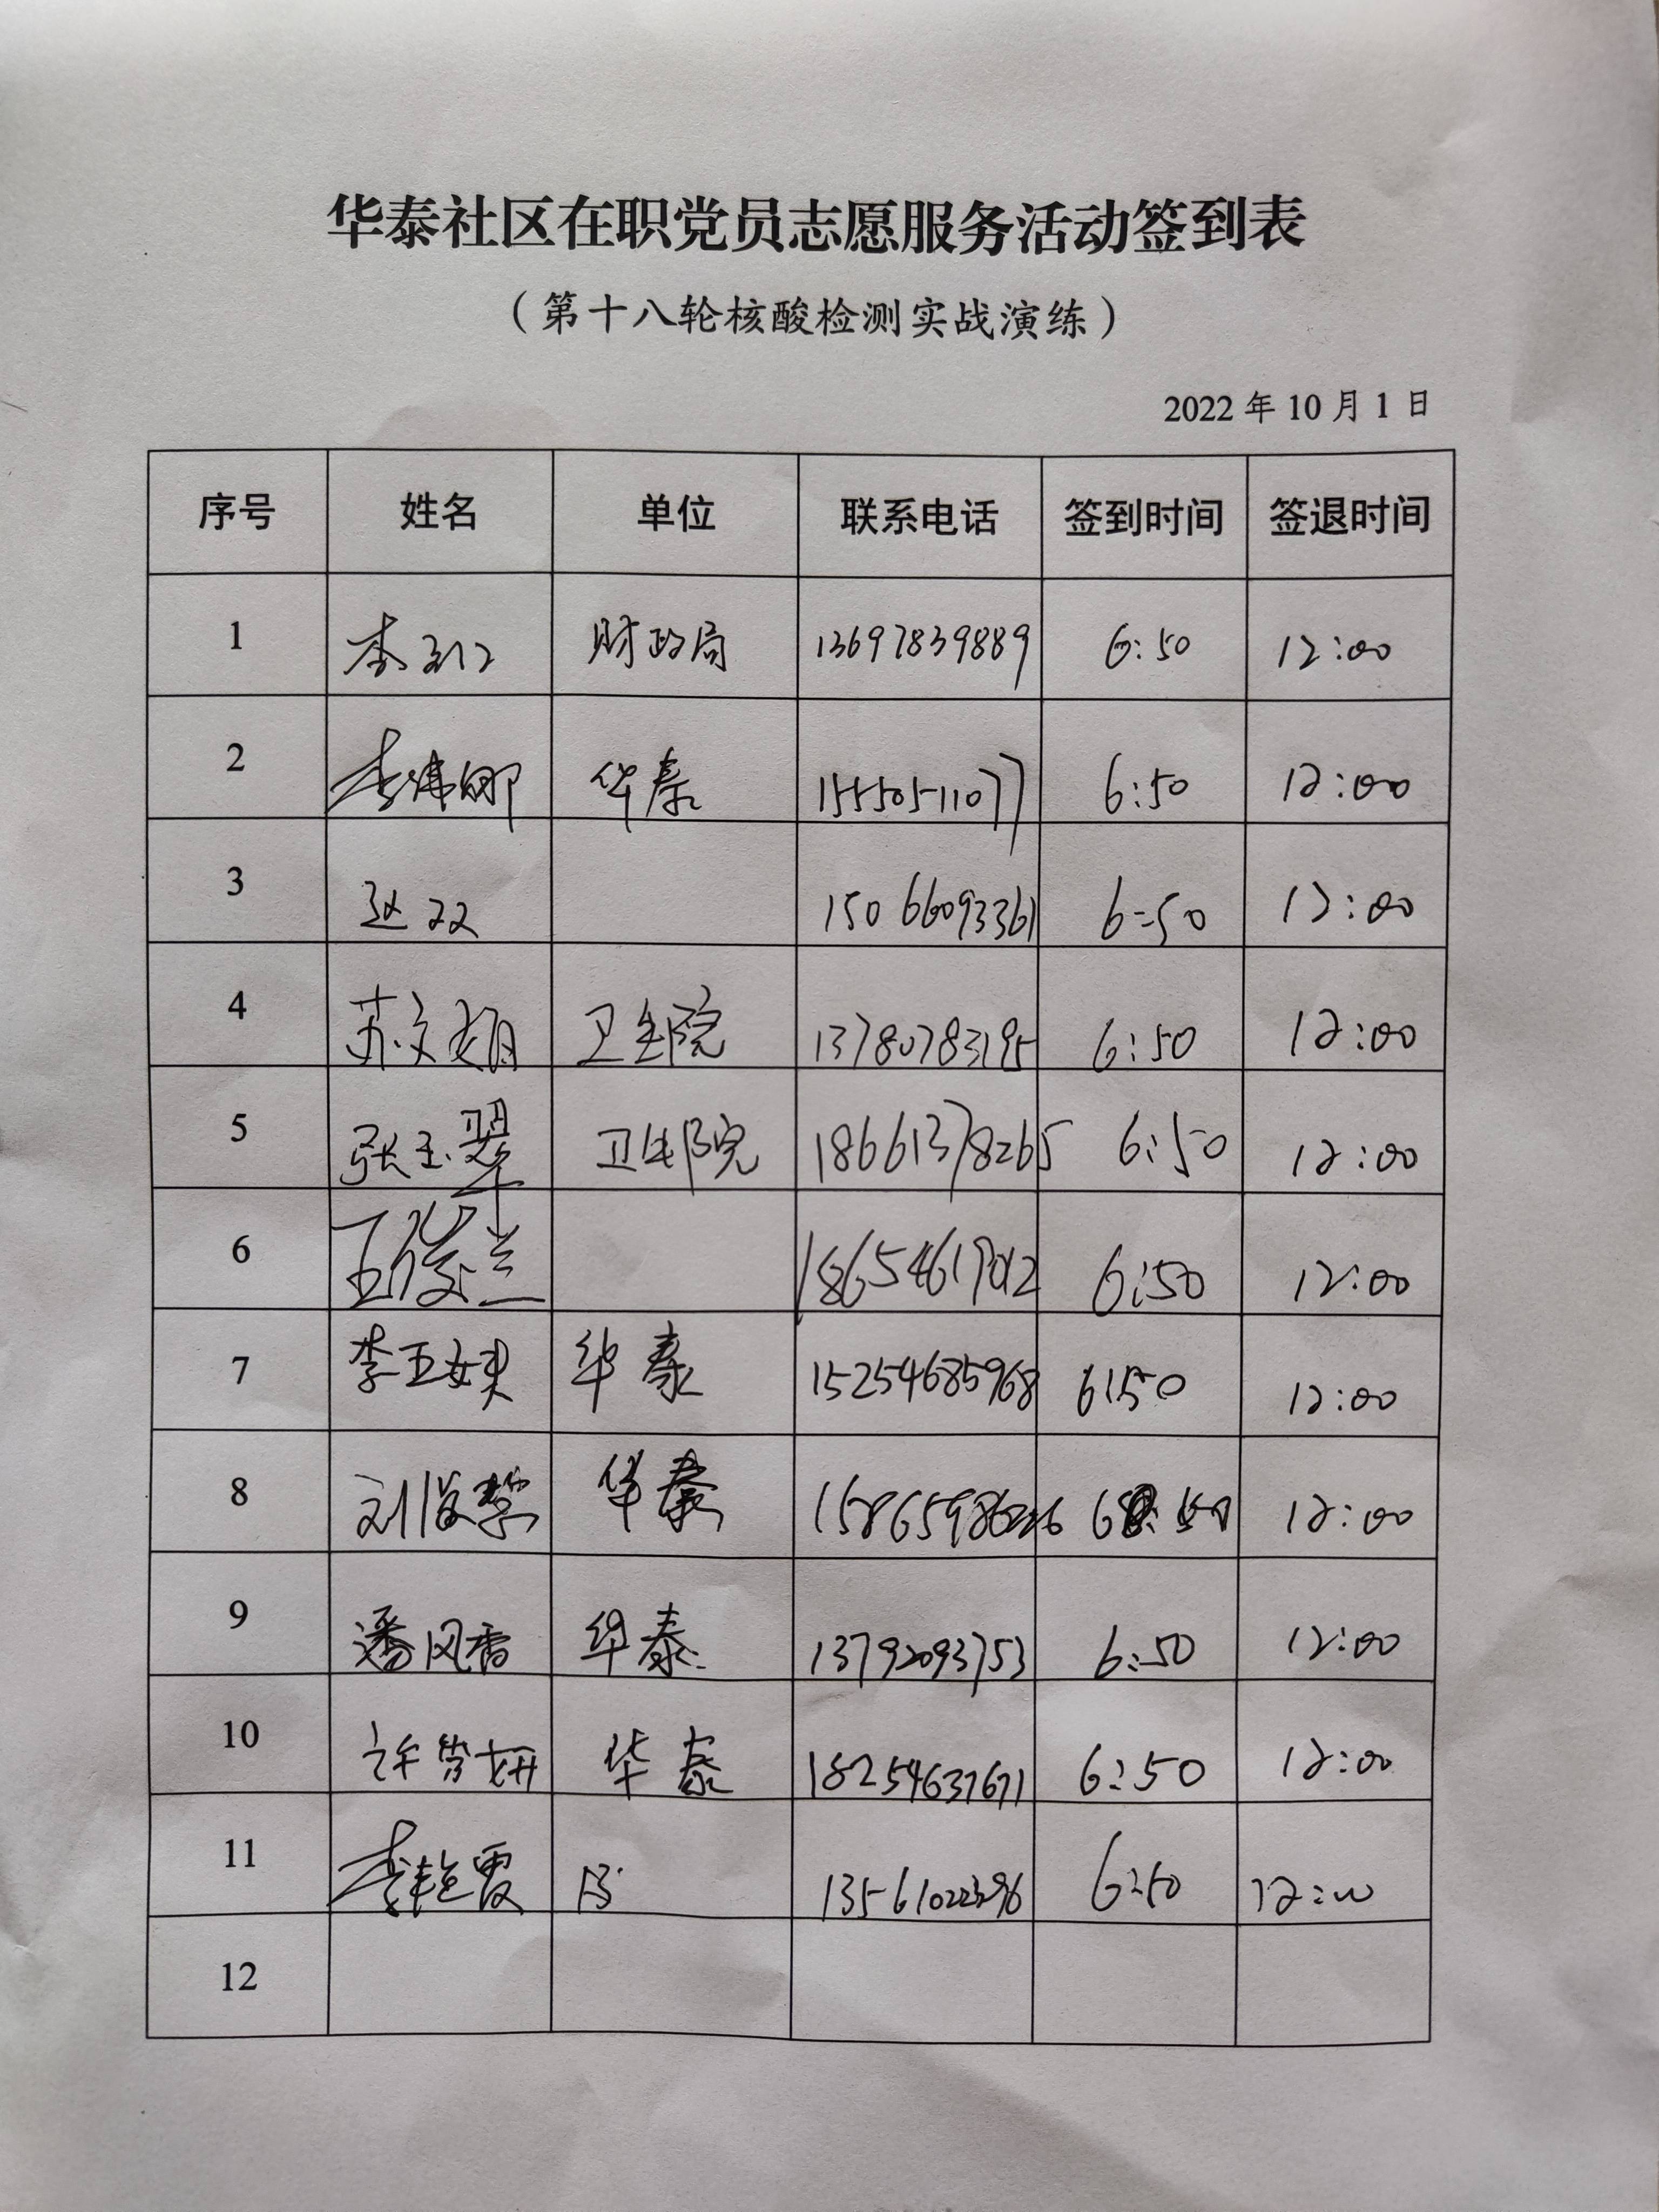 华泰社区在职党员志愿服务活动签到表
（第十八轮核酸检测实战演练）
2022年10月1日
序号 姓名 单位 联系电话 签到时间 签退时间
1 李 财政局 13697839889 6:50 12:00
2 李娜 华泰 15550511077 6:50 12:00
3 赵双 15066093361 6:50 12:00
4 苏文娟 卫生院 13780783195 6:50 12:00
5 张玉翠 卫生院 18661378265 6:50 12:00
6 王俊兰 6:50 12:00
7 李玉 华泰 15254685968 6:50 12:00
8 刘俊 华泰 12:00
9 潘风香 华泰 13792093753 6:50 12:00
10 许 妍 华泰 18254637671 6:50 12:00
11 李艳霞 6:50 12:00
12